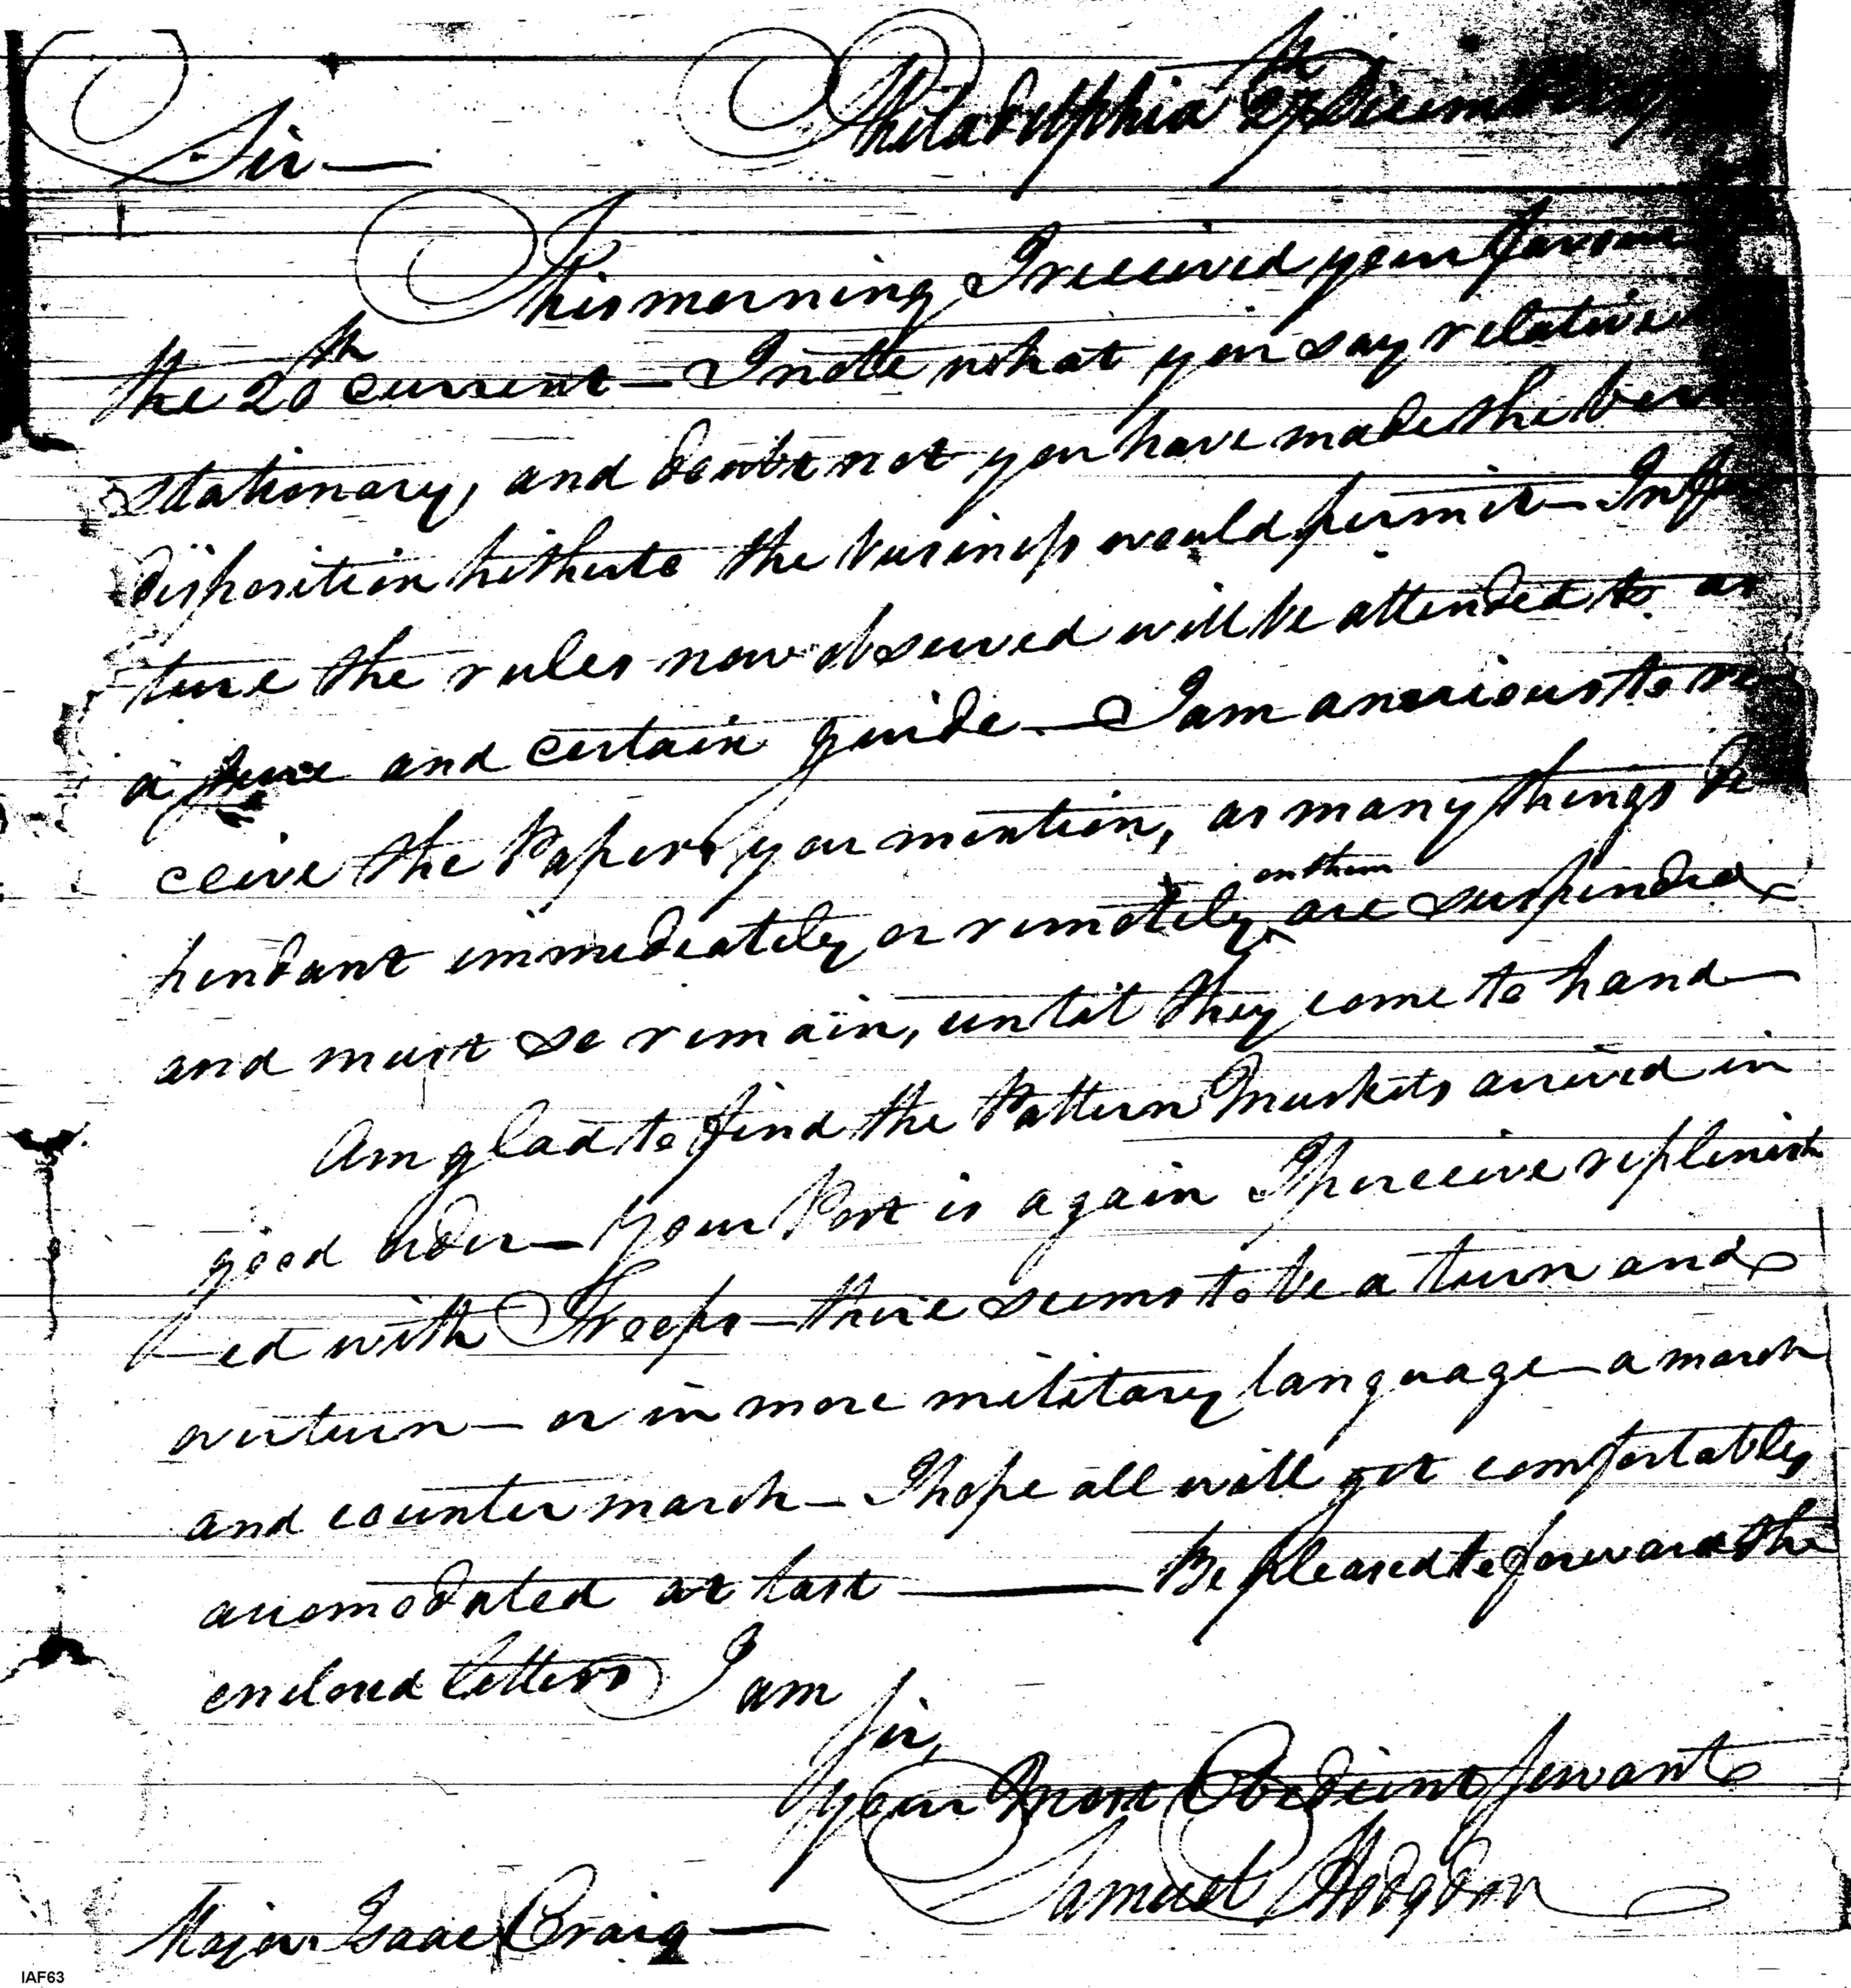 Philadelphia 27th December
Sir —
This morning I received your favour
the 20th current — I note what you say relative
stationary, and doubt not you have made the best
disposition hitherto the business would permit — In fu
ture the rules now observed will be attended to as
a sure and certain guide — I am anxious to re
ceive the Papers you mention, as many things de
pendant immediately or remotely on them are suspended
and must so remain, until they come to hand —
Am glad to find the Pattern Muskets arrived in
good order — Your Post is again I perceive replenish
— ed with Troops — there seems to be a turn and
overturn — or in more military language — a march
and counter march — I hope all will get comfortably
accomodated at last — Be pleased to forward the
enclosed letters I am
Sir,
your most Obedient Servant
Samuel Hodgdon
Major Isaac Craig —
IAF63